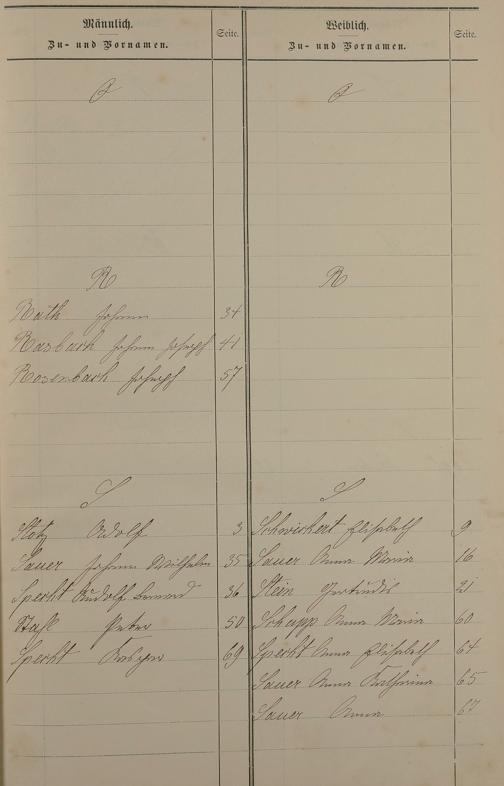 Männlich.
Zu- und Vornamen.
Seite.
Weiblich.
Zu- und Vornamen.
Seite.
Q
Q
R
R
Rath Johann 34
Rasbach Johann Joseph 41
Rosenbach Joseph 57
S
S
Stotz Adolf 3
Schwickert Elisabeth 9
Sauer Johann Wilhelm 35
Sauer Anna Maria 16
Specht Rudolf Bernard 36
Stein Gertrudis 21
Peter 50
Schupp Anna Maria 60
Specht 69
Specht Anna Elisabeth 64
Sauer Anna Katharina 65
Sauer Anna 67